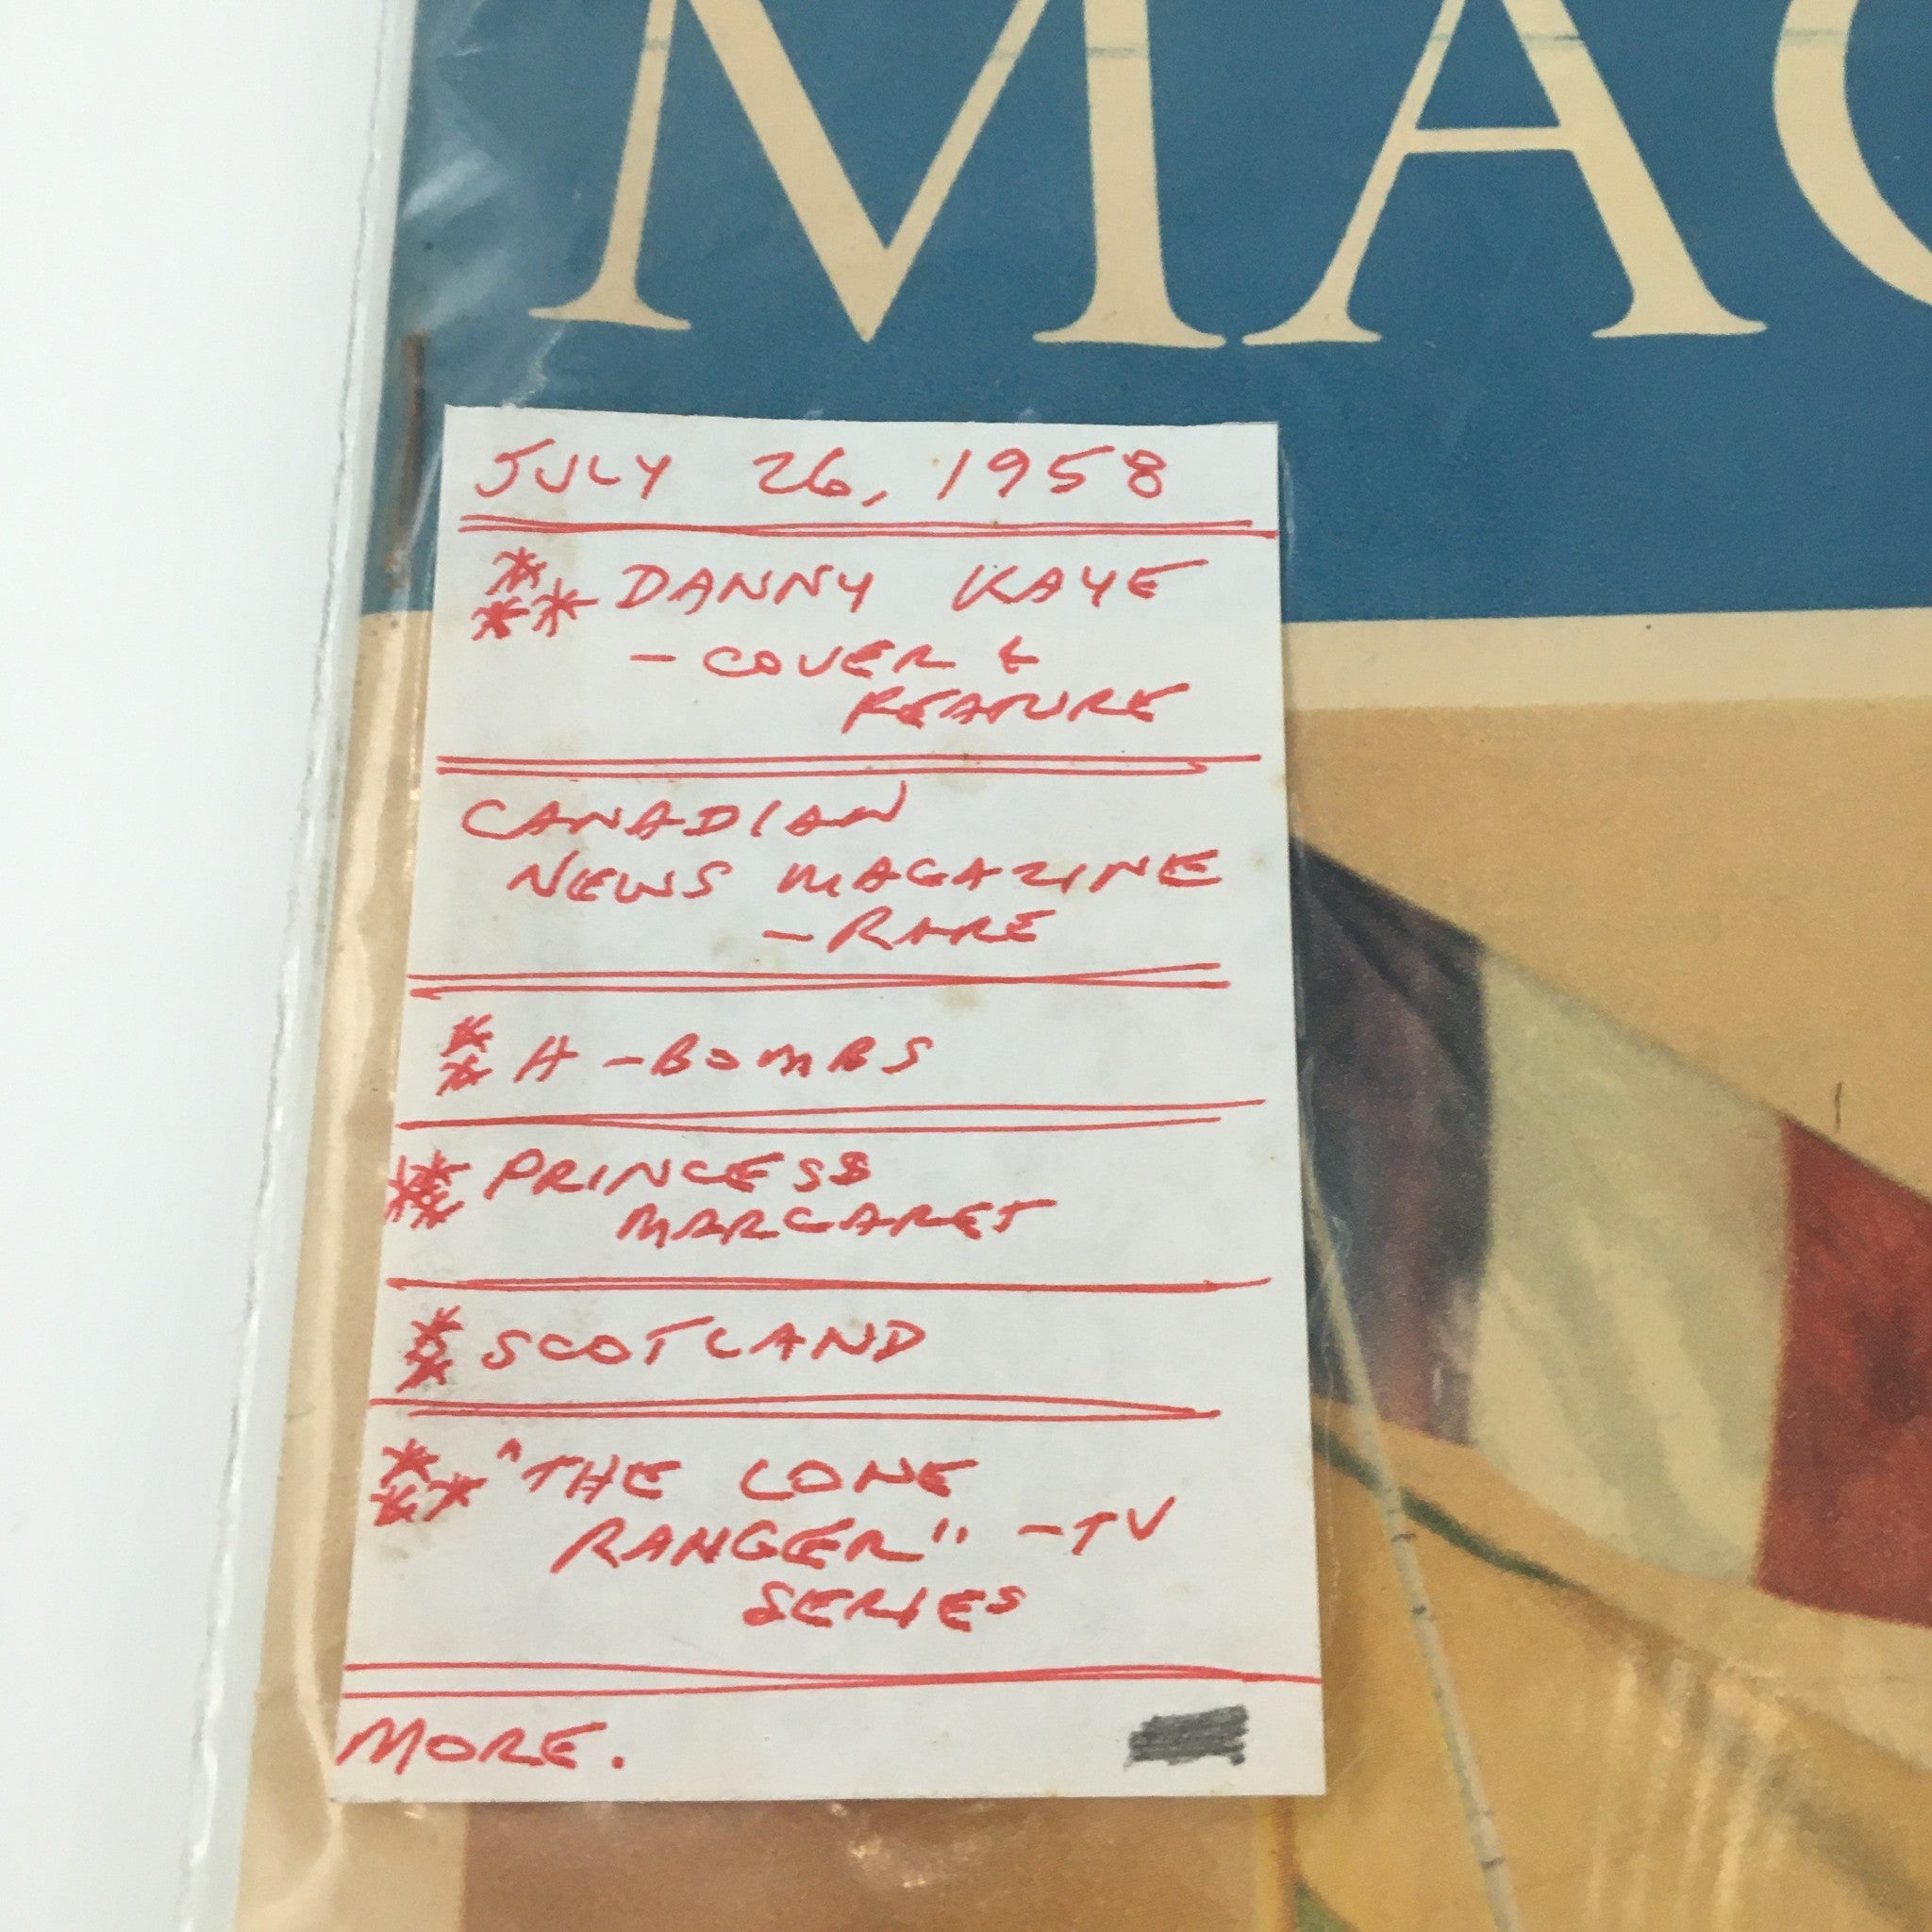 MAC
JULY 26, 1958
*** DANNY KAYE
- COVER &
FEATURE
CANADIAN
NEWS MAGAZINE
- RARE
** H-BOMBS
*** PRINCESS
MARGARET
** SCOTLAND
*** "THE LONE
RANGER" - TV
SERIES
MORE.